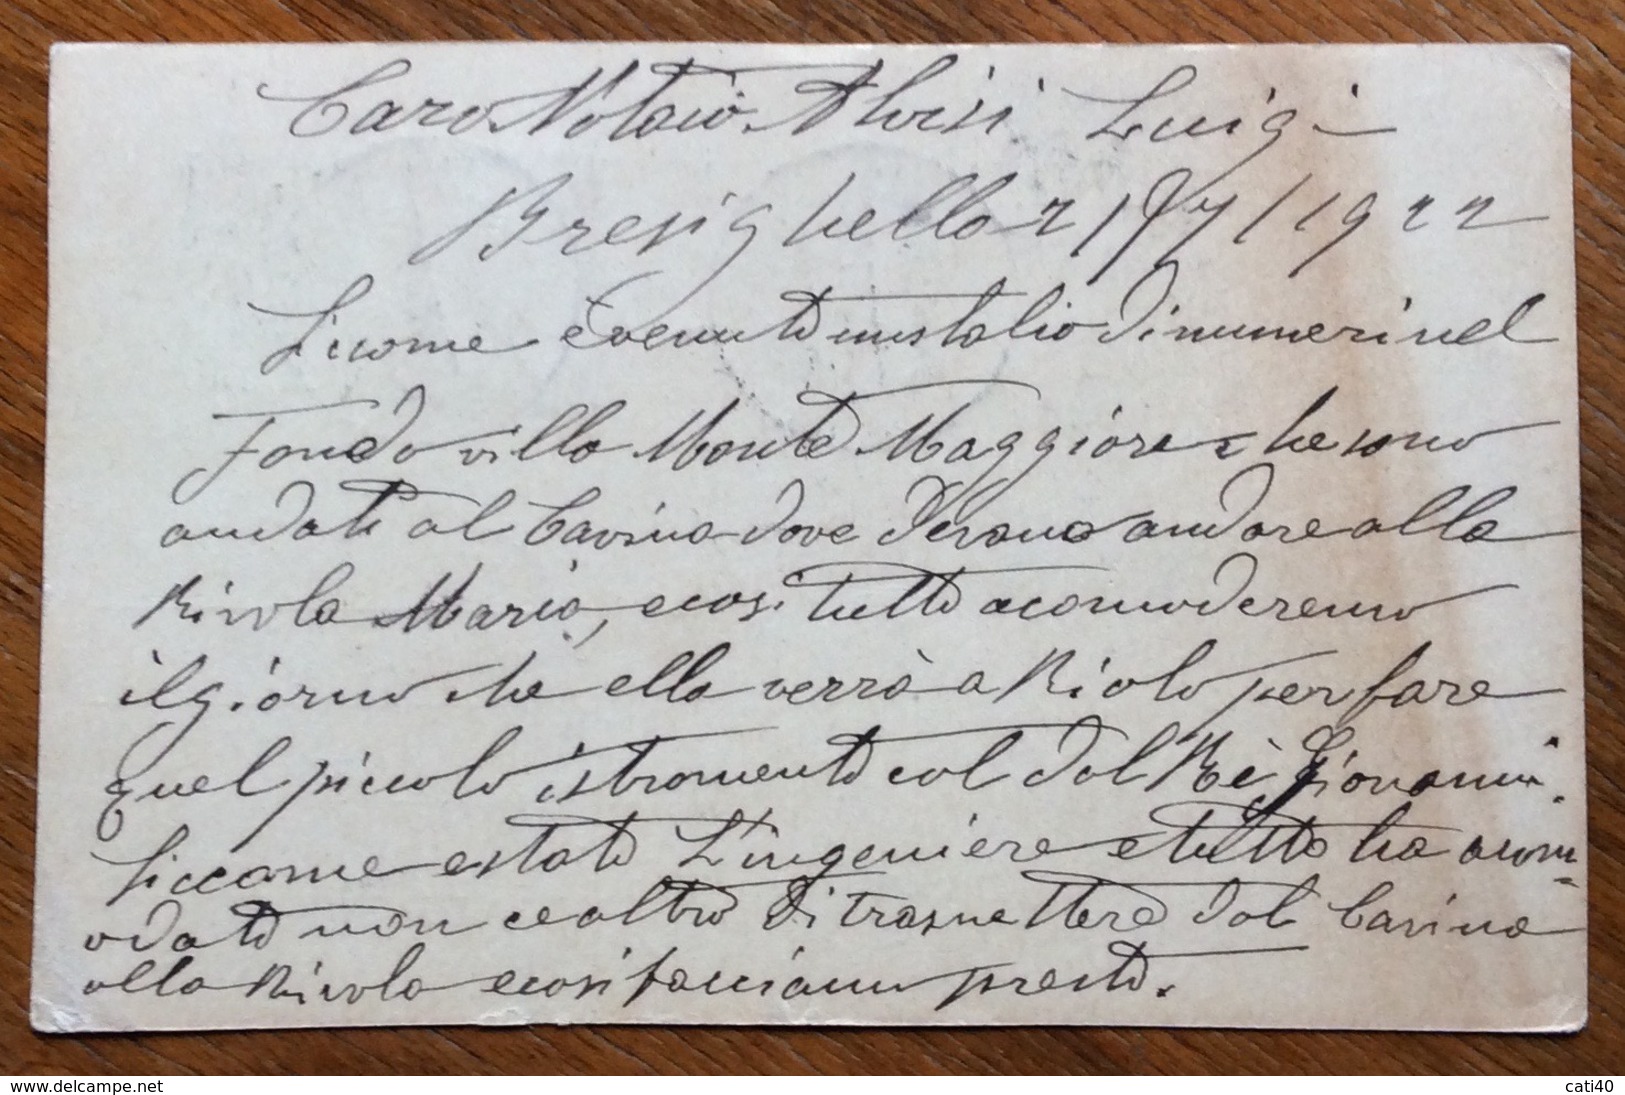 Caro Notaio Alvisi Luigi
Bresighella 21/7/1922
Sicome è venuto uno stalio di numeri nel
Fondo villa Monte Maggiore che sono
andati al Cavina dove devano andare alla
Rivola Maria, ecosi tutto acomoderemo
il giorno che ella verrà a Riolo per fare
quel piccolo istromento col Dal Rè Giovanni.
Siccome estato L'ingeniere e tutto ha acom=
odato non ce altro di trasmettere dal Cavina
alla Rivola ecosi facciamo presto.
www.delcampe.net
cati40